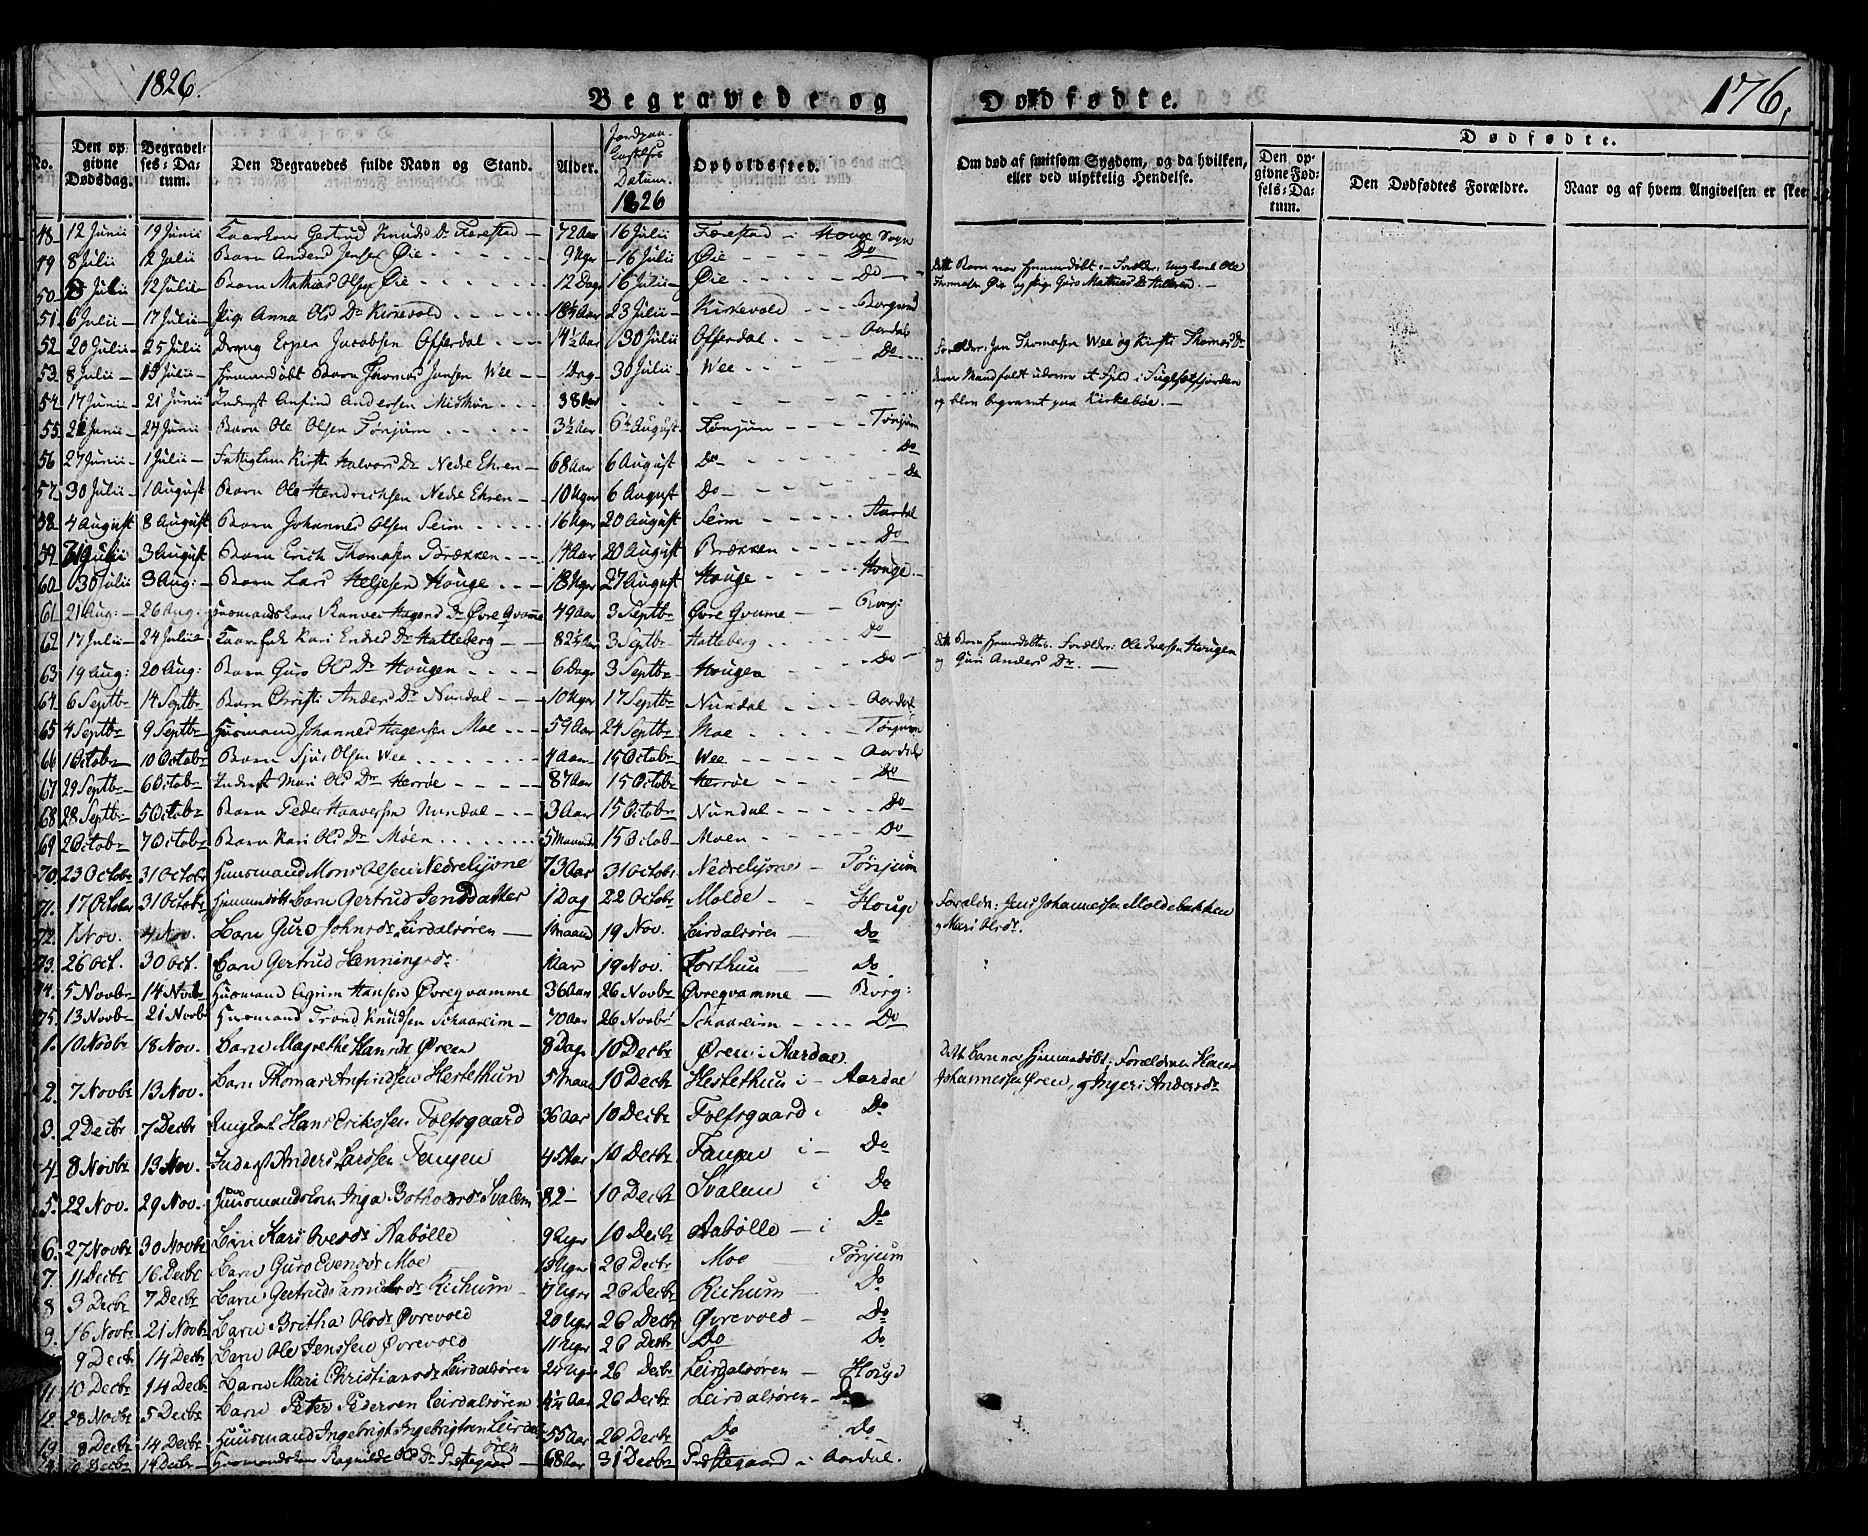 1826.
Begravede og Dødfødte.
176,
No.
Den opgivne Dødsdag.
Begravelses-Datum.
Den Begravedes fulde Navn og Stand.
Alder.
Datum. 1826
Opholdssted.
Om død af smitsom Sygdom, og da hvilken, eller ved ulykkelig Hendelse.
Dødfødte.
Den opgivne Fødsels-Datum.
Den Dødfødtes Forældre.
Naar og af hvem Angivelsen er skeet
48 12 Junii 19 Junii Gertrud Knuds Dr Færestad 72 Aar 16 Julii Færestad i Houge Sogn
49 8 Julii 12 Julii Barn Anders Jensen Øie 9 Uger 16 Julii Øie Do
50 Julii 12 Julii Barn Mathias Olsen Øie 12 Dage 16 Julii Øie Do
51 6 Julii 17 Julii Pige Anna Ols Dr Kirkevold 23 Julii Kirkevold Borgund
52. 20 Julii 25 Julii Dreng Espen Jacobsen Offerdal 14½ Aar 30 Julii Offerdal Aardal
53. 8 Julii 13 Julii Hjemmedøbt Barn Thomas Jensen Wee 1 Dag 30 Julii Wee Do
Forældr: Jen Thomasen Wee og Kirsti Thomas Dr
54 17 Junii 21 Junii Inderst Anfind Andersen 38 Aar
og blev begravet paa Kirkebøe.
55. Junii 24 Junii Barn Ole Olsen Tønjum 3½ Aar 6te August Tønjum Tønjum
56 27 Junii 1 Julii Fattiglem Kirsti Halvors Dr Nedre Ehren 68 Aar 6 August Do Do
57 30 Julii 1 August Barn Ole Hendrichsen Nedre Ehren 10 Uger 6 August Do Do
58. 4 August 8 August Barn Johannes Olsen Seim 16 Uger 20 August Seim Aardal
59 Julii 3 August Barn Erich Thomasen Brækken 14 Aar 20 August Brækken Do
60 30 Julii 3 Aug: Barn Lars Heljesen Houge 18 Uger 27 August Houge Houge
61 21 Aug: 26 Aug: Huusmandskone Ranvei Haagens Dr Øvre Qvamme 49 Aar 3 Septbr Øvre Qvame Borg:
62 17 Julii 24 Julii Kari Endres Dr Hatteberg 82½ Aar 3 Septbr Hatteberg Do
63 19 Aug: 20 Aug: Barn Guro Ols Dr Hougen 6 Dage 3 Septbr Hougen Do
Dette Barn hjemmedøbtes. Forældr: Ole Iversen Hougen
og Guri Anders Dr.
64 6 Septbr 14 Septbr Barn Christi Anders Dr Nundal 10 Uger 17 Septbr Nundal Aardal
65 4 Septbr 9 Septbr Huusmand Johannes Hagensen Moe 59 Aar 24 Septbr Moe Tønjum
66 1 Octobr 10 Octobr Barn Sjur Olsen Wee 4 Aar 15 Octobr Wee Aardal
67 29 Septbr 6 Octobr Inderst Mari Ols Dr Herrøe 87 Aar 15 Octobr Herrøe Do
68 28 Septbr 5 Octobr Barn Peder Haaversen Nundal 3 Aar 15 Octobr Nundal Do
69 2 Octobr 7 Octobr Barn Kari Ols Dr Moen 5 Maaned 15 Octob Moen Do
70 23 Octobr 31 Octobr Huusmand Mons Olsen Nedrelysne 73 Aar 31 Octobr Nedrelysne Tønjum
71. 17 Octobr 31 Octobr Hjemmedøbt Barn Gertrud Jensdatter 1 Dag 22 Octobr Molde Houge
Forældr: Jens Johannessen Moldebakken
og Mari Olsdr.
72. 1 Nov. 4 Nov. Barn Guro Johnsdr Leirdalsøren 1 Maaned 19 Nov. Leirdalsøren Do
73. 26 Oct. 30 Oct. Barn Gertrud Henningsdr 1 Aar 19 Nov. Forthun Do
74. 5 Novbr 14 Novbr Huusmand Agrim Hansen Øvreqvamme 36 Aar 26 Novbr Øvreqvamme Borg:
75. 13 Novbr 21 Novbr Huusmand Trond Knudsen Schaareim 70 Aar 26 Novbr Schaareim Do
1. 10 Novbr 18 Nov. Barn Magrethe Hansdr Øren 8 Dage 10 Decbr Øren i Aardal
Dette Barn var hjemmedøbt; Forældrene
Johannessen Øren, og Ingeri Andersdr
2. 7 Novbr 13 Nov. Barn Thomas Anfindsen Hestethun 5 Maaned 10 Decbr Hestethun i Aardal
3. 2 Decbr 7 Decbr Ungkarl Hans Erikssen Tolfsgaard 36 Aar 10 Decbr Tolfsgaard i Do
4. 8 Novbr 13 Nov. Inderst Anders Larssen Tangen 45 Aar 10 Decbr Tangen i Do
5. 22 Nov. 29 Nov. Huusmandskone Inga Botholvsdr Svalem 82 10 Decbr Svalem i Do
6. 27 Novbr 30 Novbr Barn Kari Aabølle 9 Uger 10 Decbr Aabølle i Do
7. 11 Decbr 16 Decbr Barn Guro Evensdr Moe 13 Uger 26 Decbr Moe Tønjum
8 3 Decbr 7 Decbr Barn Gertrud Samuelsdr Richum 17 Uger 26 Decbr Richum Do
9. 16 Novbr 21 Novbr Barn Britha Olsdr Øvrevold 20 Uger 26 Decbr Øvrevold Do
9 Decbr 14 Decbr Barn Ole Jenssen Øvrevold 11 Uger 26 Decbr Do Do
11. 10 Decbr 14 Decbr Barn Mari Christiansdr Leirdalsøren 24 Uger 26 Decbr Leirdalsøren Houge
12. 28 Novbr 5 Decbr Barn Peter Pedersen Leirdalsøren 4¼ Aar 26 Decbr Leirdalsøren Do
8 Decbr 14 Decbr Huusmand Ingebrigt Ingebrigtsen Leirdalsøren 55 Aar 26 Decbr Do Do
Decbr 14 Decbr Huusmandskone Ragnilde Ols Dr Prestegaard 68 Aar 31 Decbr Prestegaard i Aardal.